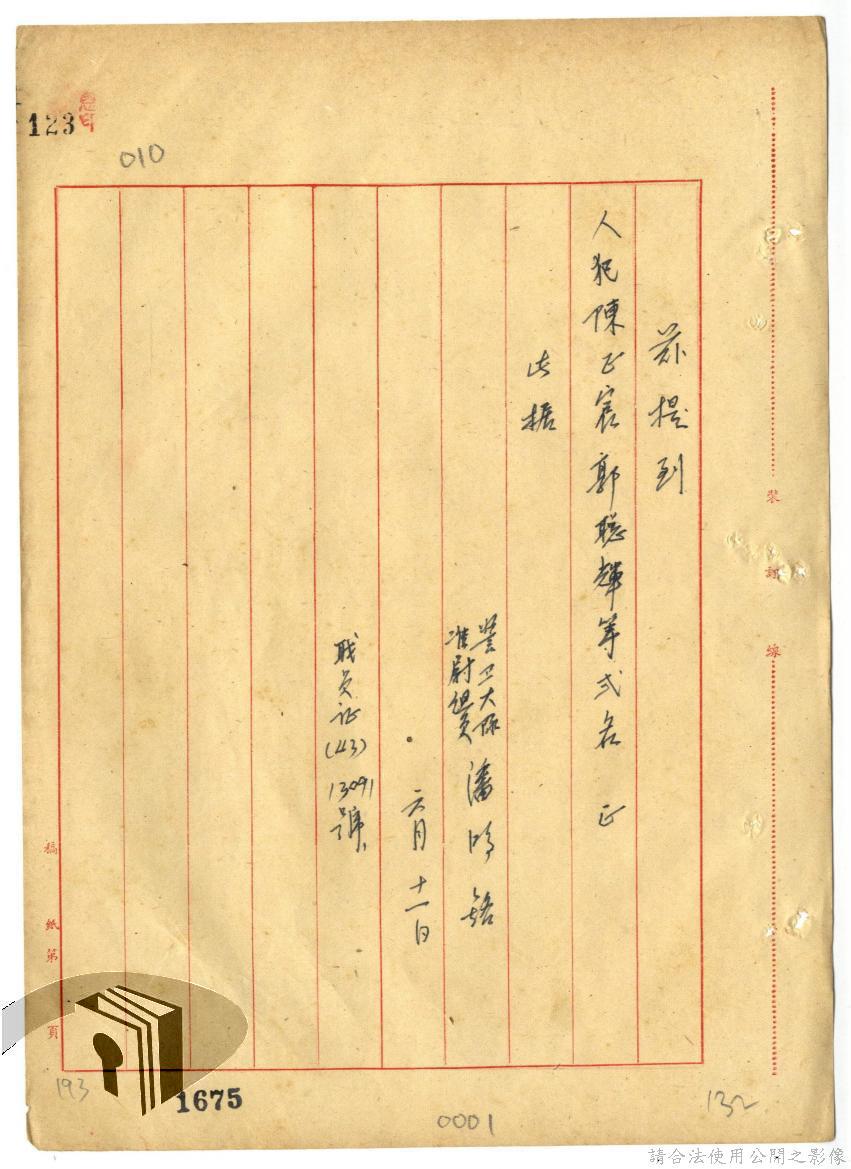 123
010
茲提到
人犯陳正宸郭聰輝等弍名正
此据
警卫大隊
准尉組員
潘
六月十一日
職員証(43)13091號
裝訂線
稿紙第頁
193
1675
0001
132
請合法使用公開之影像